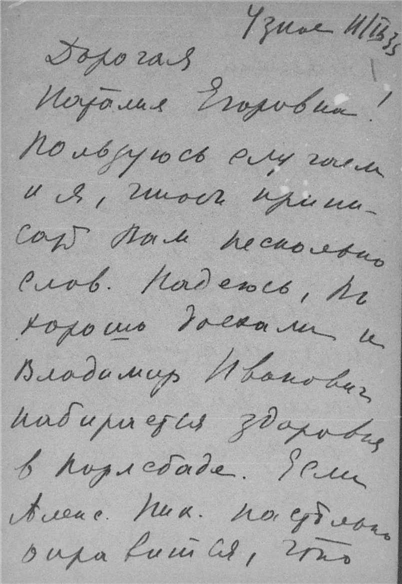 Узкое 11/IX 35
Дорогая
Наталия Егоровна!
Пользуюсь случаем
и я, чтобы припи-
сать Вам несколько
слов. Надеюсь, Вы
хорошо доехали и
Владимир Иванович
набирается здоровья
в Карлсбаде. Если
Алекс. Ник. настолько
оправится, что